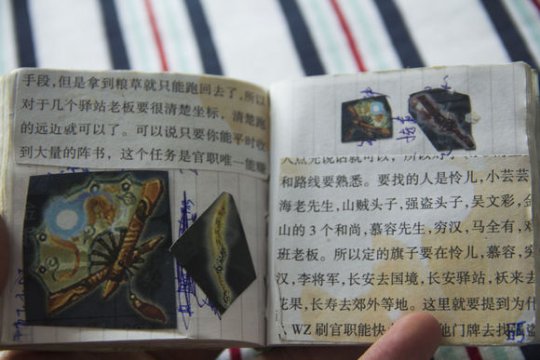 手段,但是拿到粮草就只能跑回去了,所以
对于几个驿站老板要很清楚坐标,清楚跑
的远边就可以了。可以说只要你能平时收
到大量的阵书,这个任务是官职唯一能赚
和路线要熟悉。要找的人是怜儿,小芸芸
海老先生,山贼头子,强盗头子,吴文彩,金
山的3个和尚,慕容先生,穷汉,马全有,对
班老板。所以定的旗子要在怜儿,慕容,穷
汉,李将军,长安去国境,长安驿站,袄来去
花果,长寿去郊外等地。这里就要提到为什
WZ刷官职能快
他门牌去找